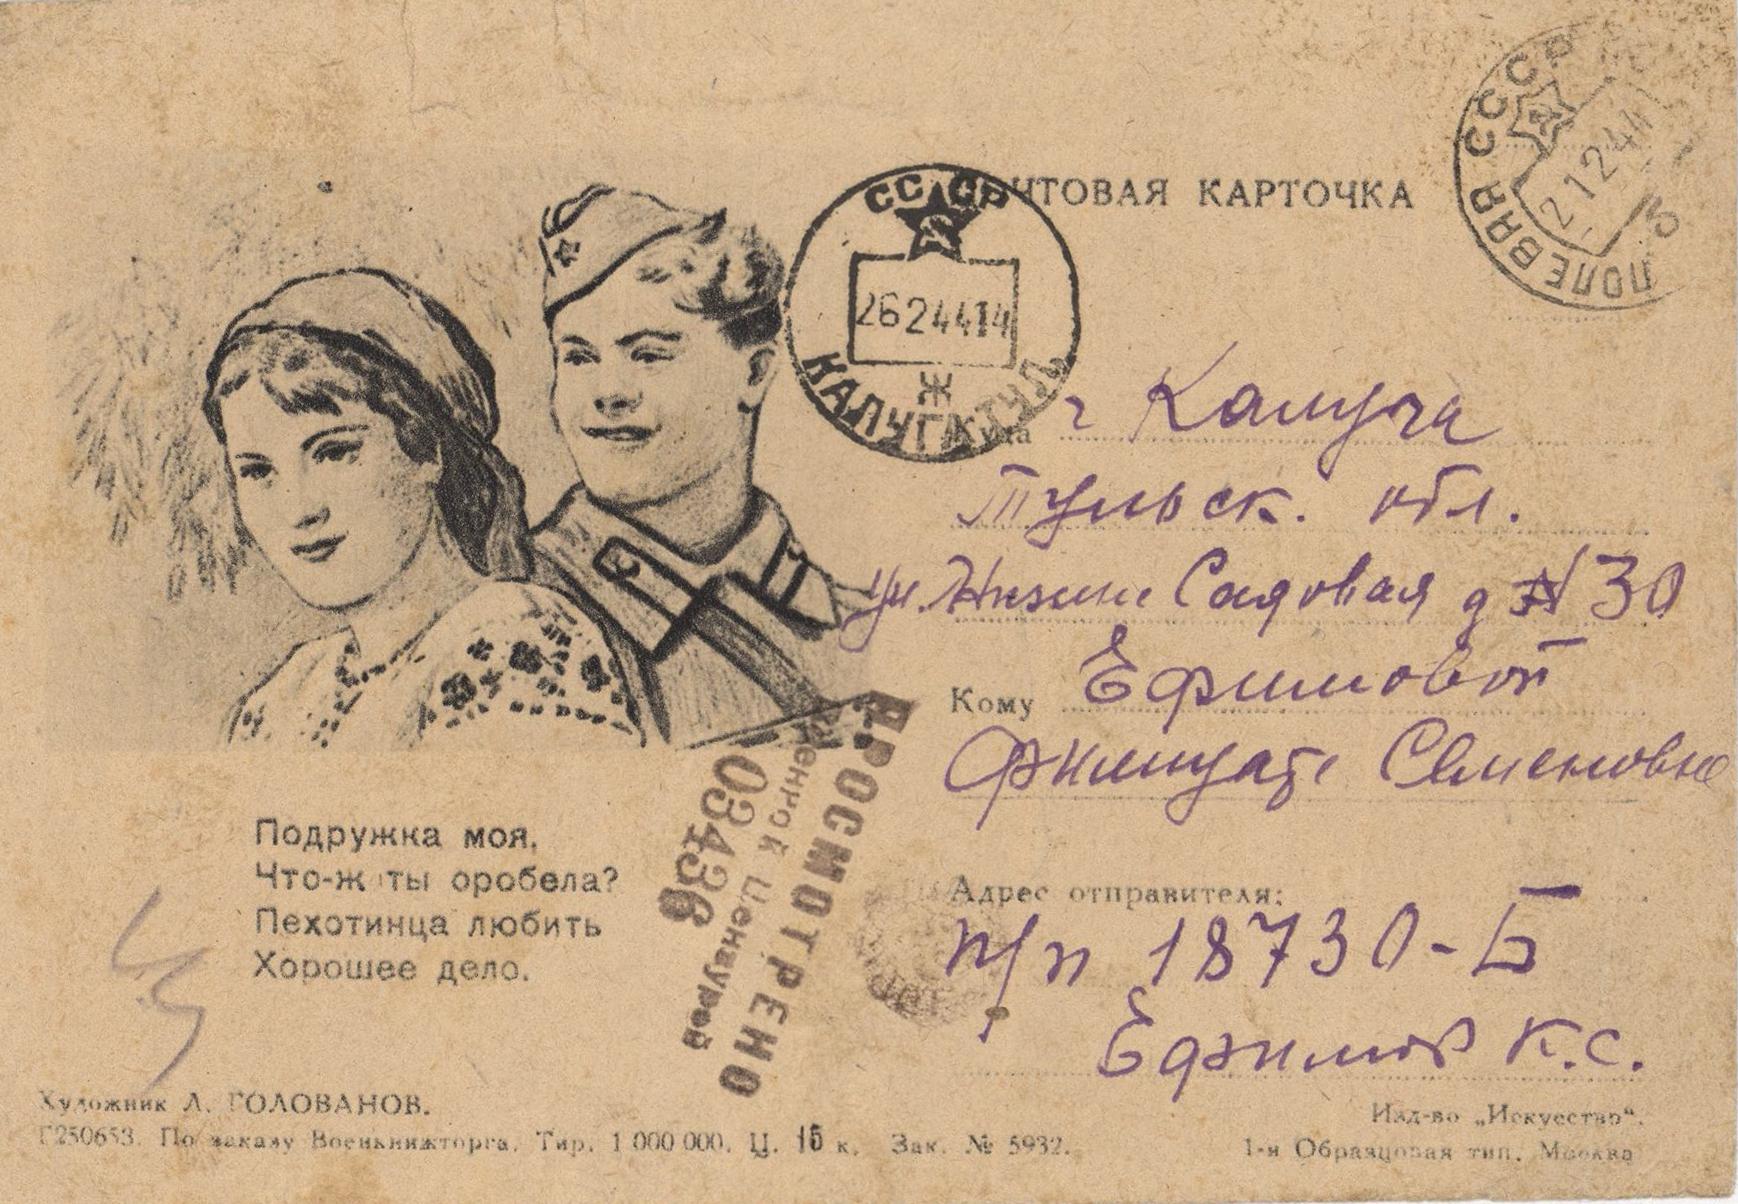 ПОЧТОВАЯ КАРТОЧКА
ПОЛЕВАЯ СССР
21 2 44
СССР
26 2 44 14
Ж
КАЛУГА ТУЛ.
Куда г Калуга
Тульск. обл.
ул. Нижне Садовая д N 30
Кому Ефимовой
Семеновне
Адрес отправителя:
п/п 18730-Б
Ефимов К.С.
Подружка моя,
Что-ж ты оробела?
Пехотинца любить
Хорошее дело.
ПРОСМОТРЕНО
Военной Цензурой
03436
Художник Л. ГОЛОВАНОВ.
Г250653. По заказу Военкнижторга. Тир. 1 000 000. Ц. 15 к. Зак. № 5932.
Изд-во „Искусство“.
1-я Образцовая тип. Москва